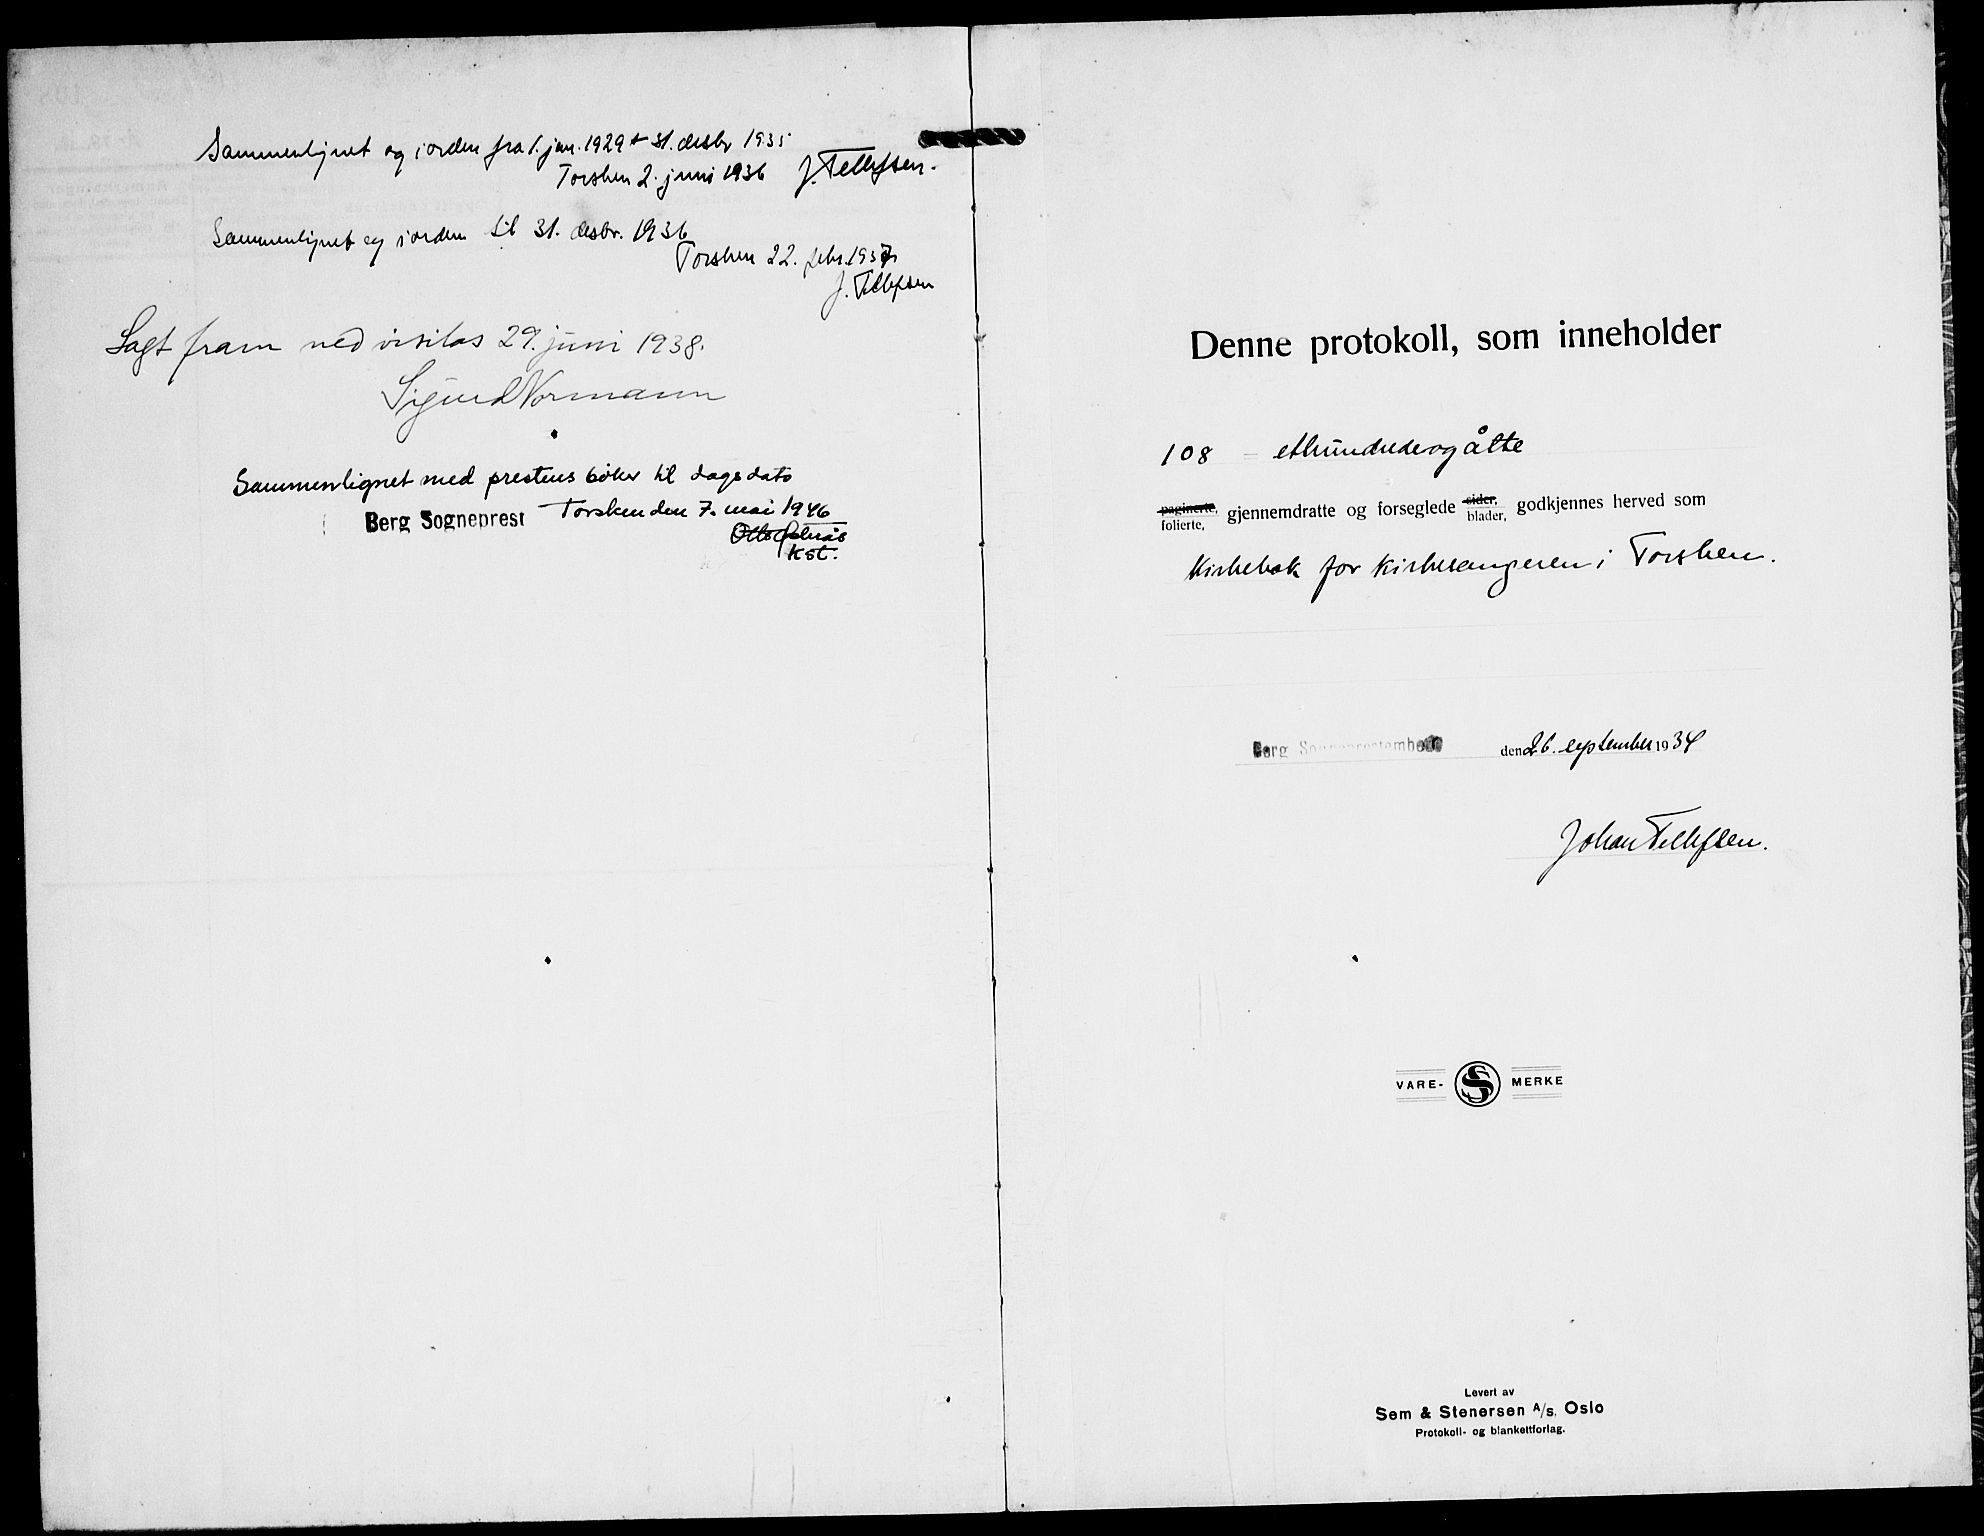 Sammenlignet og i orden fra 1. jan. 1929 t 31. desbr 1935
Torsken 2. juni 1936 J. Tellefsen.
Sammenlignet og i orden til 31. desbr. 1936
Torsken 22. febr. 1937
J. Tellefsen
Lagt fram ved visitas 29. juni 1938.
Sigurd Normann
Sammenlignet med prestens bøker til dags dato
Berg Sogneprest Torsken den 7. mai 1946
Otto
kst.
Denne protokoll, som inneholder
108 – ethundredeogåtte
paginerte, folierte, gjennemdratte og forseglede sider, blader, godkjennes herved som
Kirkebok for kirkesangeren i Torsken.
Berg Sogneprestembede den 26. september 1934
Johan Tellefsen.
VARE- S MERKE
Levert av
Sem & Stenersen A/s, Oslo
Protokoll- og blankettforlag.